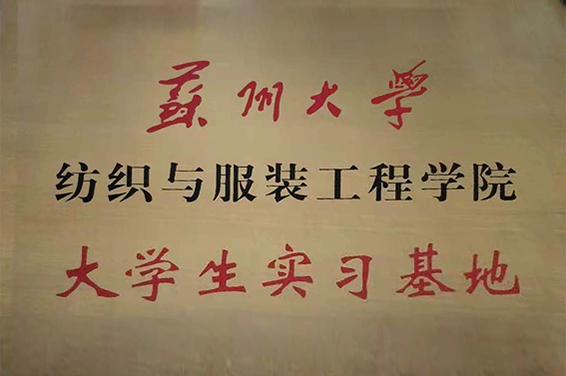 蘇州大學
纺织与服装工程学院
大学生实习基地